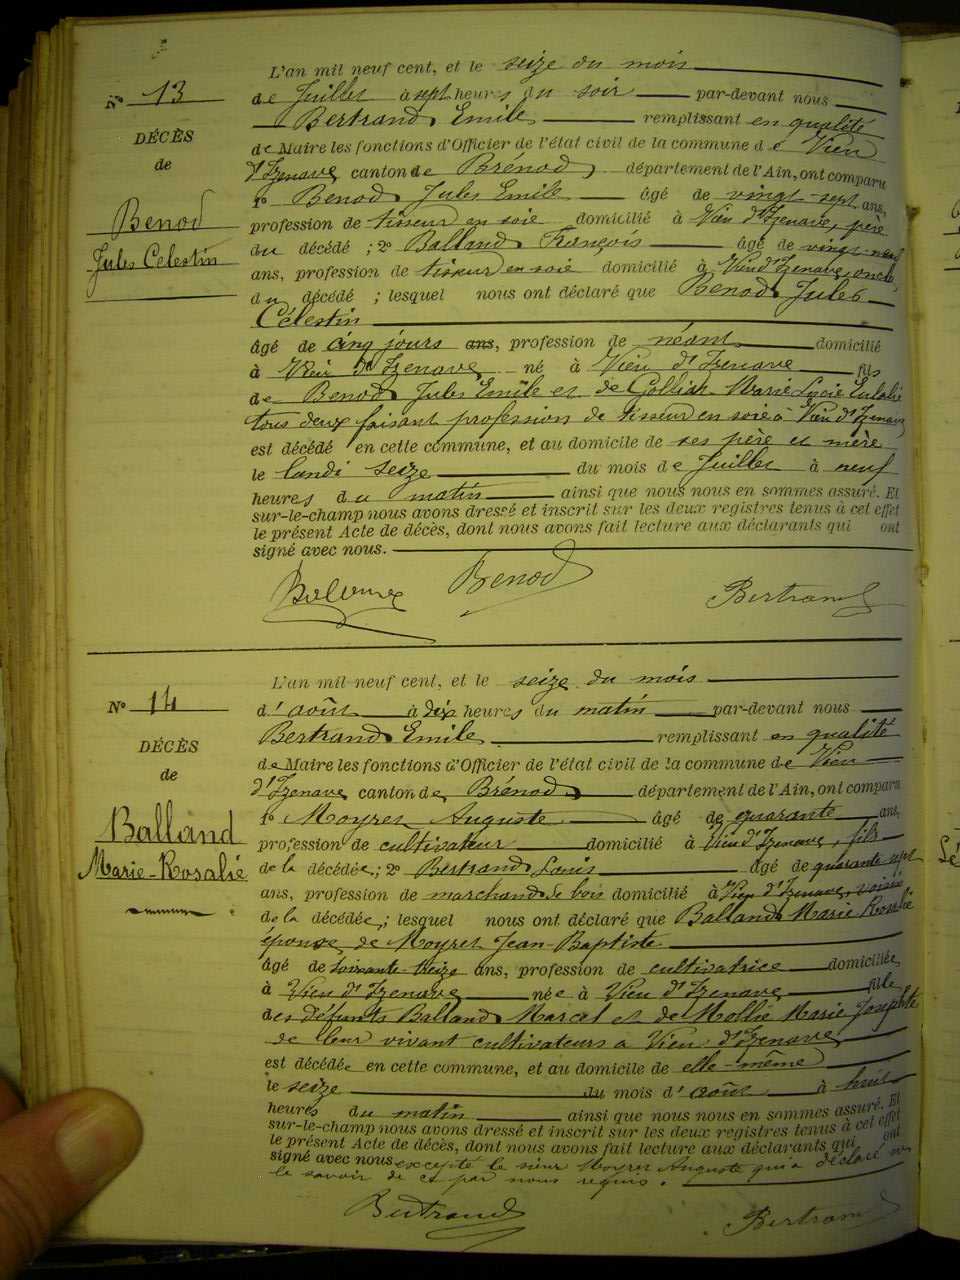 L'an mil neuf cent, et le seize du mois
N° 13
de Juillet à sept heures du soir par-devant nous
Bertrand Emile remplissant en qualité
DÉCÈS
de Maire les fonctions d'Officier de l'état civil de la commune de Vieu
de
d'Izenave canton de Brénod département de l'Ain, ont comparu
1º Benod Jules Emile âgé de vingt-sept ans,
Benod
profession de tisseur en soie domicilié à Vieu d'Izenave, père
du décédé ; 2º Balland François âgé de vingt-neuf
Jules Célestin
ans, profession de tisseur en soie domicilié à Vieu d'Izenave, oncle
du décédé ; lesquel nous ont déclaré que Benod Jules
Célestin
âgé de cinq jours ans, profession de néant domicilié
à Vieu d'Izenave né à Vieu d'Izenave fils
de Benod Jules Emile et de Marie Lucie Eulalie
tous deux faisant profession de tisseur en soie à Vieu d'Izenave
est décédé en cette commune, et au domicile de ses père et mère
le lundi seize du mois de Juillet à neuf
heures du matin ainsi que nous nous en sommes assuré. Et
sur-le-champ nous avons dressé et inscrit sur les deux registres tenus à cet effet
le présent Acte de décès, dont nous avons fait lecture aux déclarants qui ont
signé avec nous.
Benod Bertrand
L'an mil neuf cent, et le seize du mois
N° 14
d'août à dix heures du matin par-devant nous
Bertrand Emile remplissant en qualité
DÉCÈS
de Maire les fonctions d'Officier de l'état civil de la commune de Vieu
de
d'Izenave canton de Brénod département de l'Ain, ont comparu
1º Moyret Auguste âgé de quarante ans,
Balland
profession de cultivateur domicilié à Vieu d'Izenave, fils
Marie-Rosalie
de la décédée ; 2º Bertrand Louis âgé de quarante sept
ans, profession de marchand de bois domicilié à Vieu d'Izenave, voisin
de la décédée ; lesquel nous ont déclaré que Balland Marie Rosalie
épouse de Moyret Jean-Baptiste
âgé de soixante-treize ans, profession de cultivatrice domiciliée
à Vieu d'Izenave née à Vieu d'Izenave fille
des défunts Balland Marcel et de Mollie Marie Josephte
de leur vivant cultivateurs a Vieu d'Izenave
est décédée en cette commune, et au domicile de elle-même
le seize du mois d'août à huit
heures du matin ainsi que nous nous en sommes assuré. Et
sur-le-champ nous avons dressé et inscrit sur les deux registres tenus à cet effet
le présent Acte de décès, dont nous avons fait lecture aux déclarants qui ont
signé avec nous excepté le sieur Moyret Auguste qui a déclaré ne
le savoir de ce par nous requis.
Bertrand Bertrand